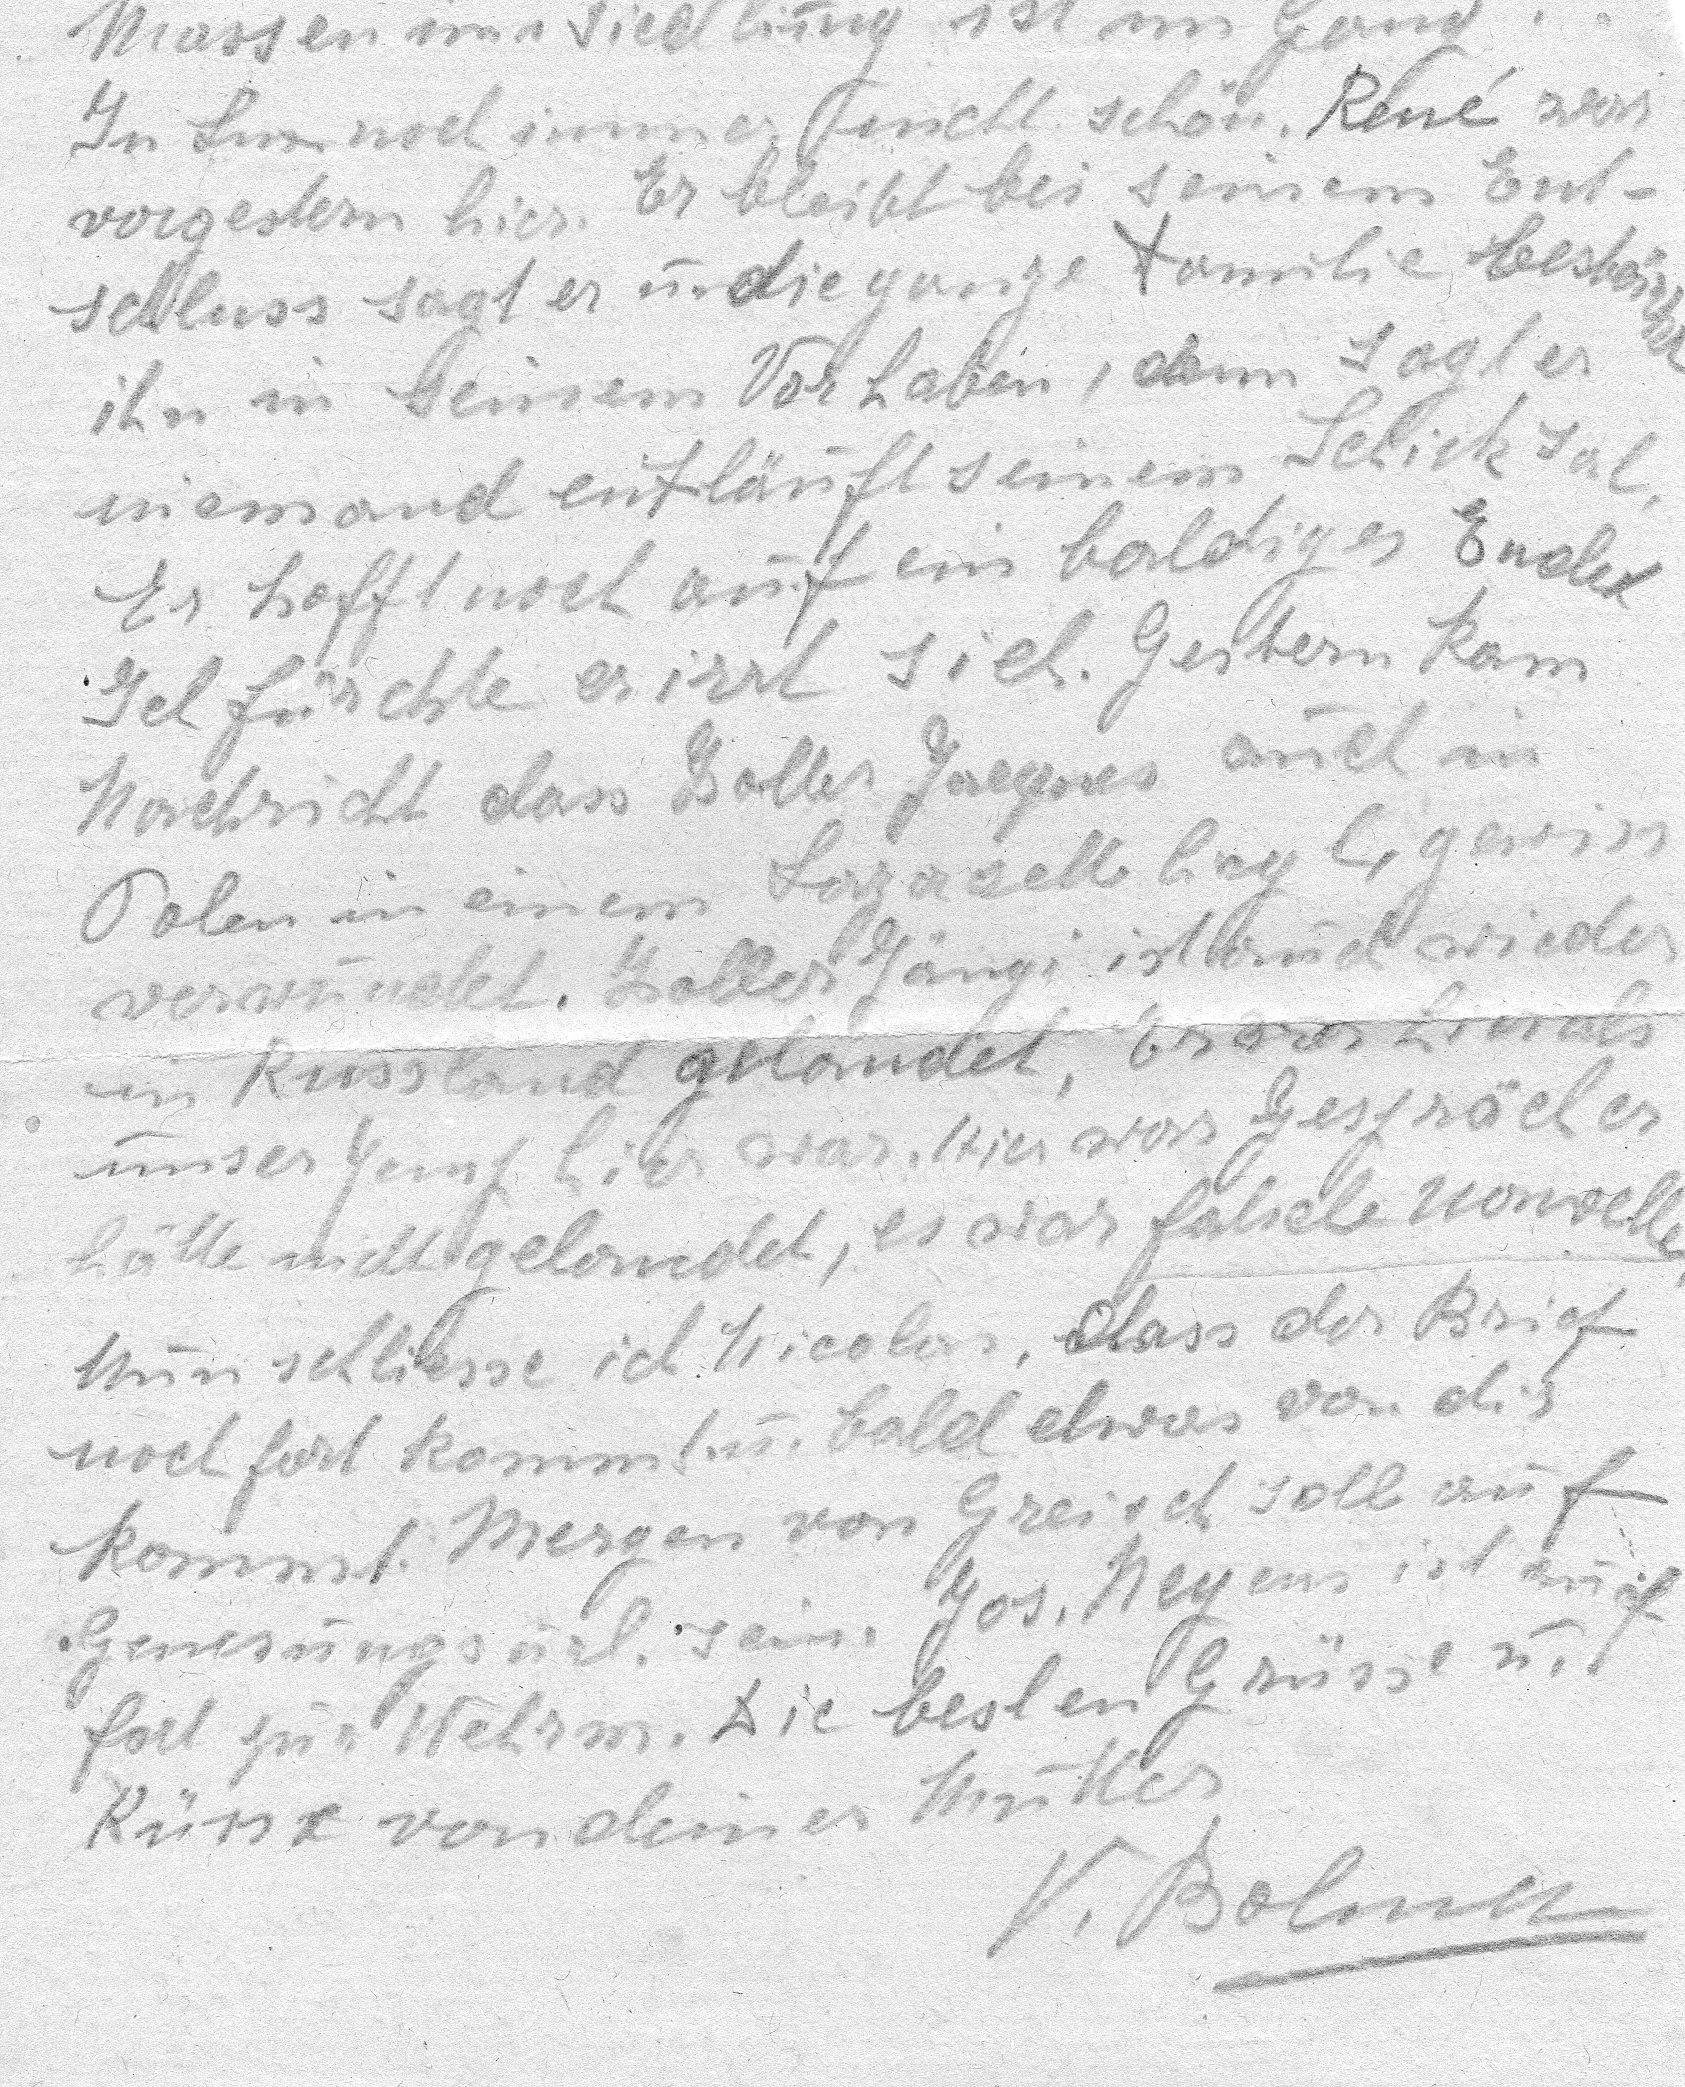 Massenumsiedlung ist im Gang.
In Lux noch immer nicht schön. René war
vorgestern hier. Er bleibt bei seinem Ent-
schluss sagt er u. die ganze Familie bestärkt
ihn in seinem Vorhaben, denn sagt er
niemand entläuft seinem Schicksal.
Er hofft noch auf ein baldiges Ende
Ich fürchte er irrt sich. Gestern kam
Nachricht dass Zoller Jacques auch in
Polen in einem Lazarett liegt, gewiss
verwundet. Zoller Jängi ist auch wieder
in Russland gelandet, Er war hier als
unser Jemp hier war. Hier war Gespräch er
hätte nicht gelandet, es war falsche
Nun schliesse ich Nicolas, dass der Brief
noch fort kommt u. bald etwas von dir
kommt. Mergen von Greisch soll auf
Genesungsurl. sein. Jos. Neyens ist auch
fort zur Wehrm. Die besten Grüsse u.
Küsse von deiner Mutter
V.